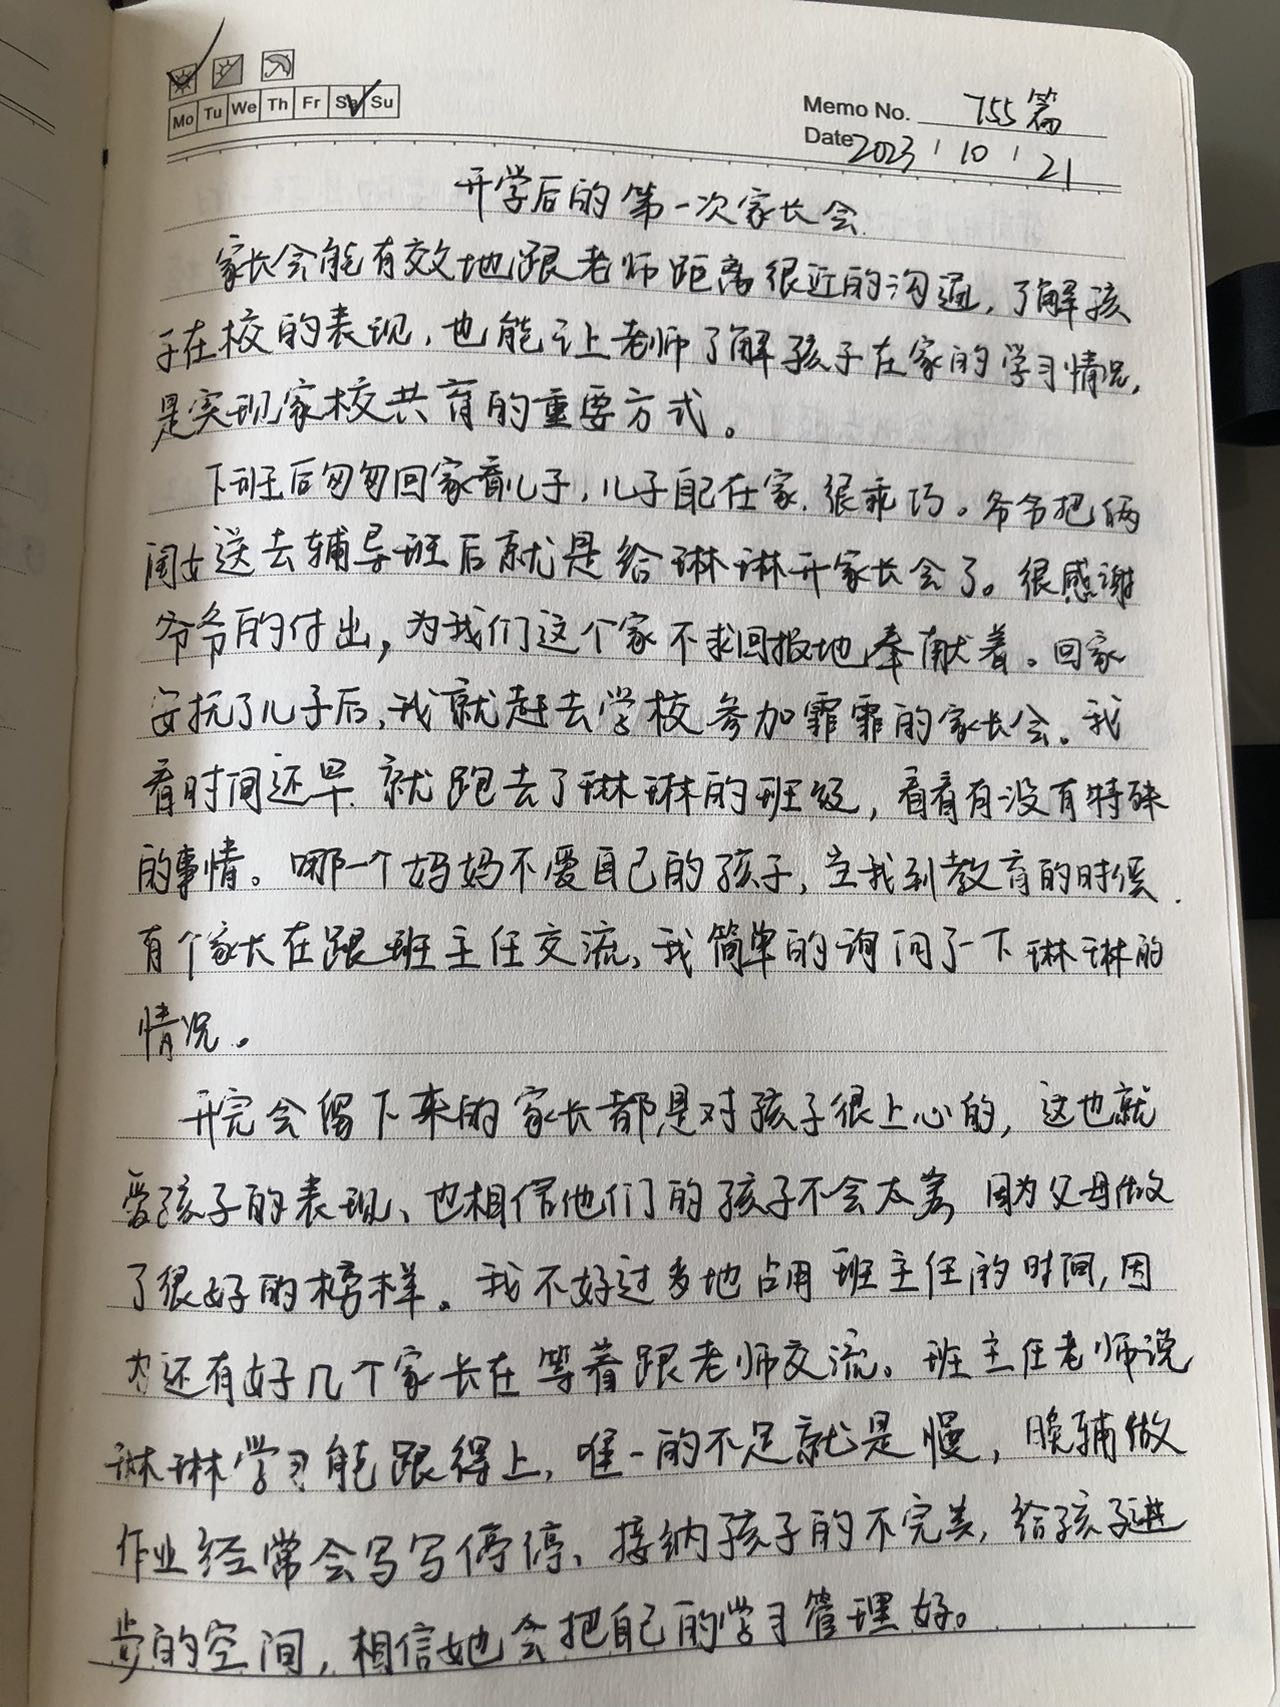 Mo Tu We Th Fr Sa Su
Memo No. 755篇
Date 2023 / 10 / 21
开学后的第一次家长会
家长会能有效地跟老师距离很近的沟通,了解孩
子在校的表现,也能让老师了解孩子在家的学习情况,
是实现家校共育的重要方式。
下班后匆匆回家看儿子,儿子自己在家,很乖巧。爷爷把俩
闺女送去辅导班后就是给琳琳开家长会了。很感谢
爷爷的付出,为我们这个家不求回报地奉献着。回家
安抚了儿子后,我就赶去学校参加霏霏的家长会。我
看时间还早,就跑去了琳琳的班级,看看有没有特殊
的事情。哪一个妈妈不爱自己的孩子,当我到教育的时候,
有个家长在跟班主任交流,我简单的询问了一下琳琳的
情况。
开完会留下来的家长都是对孩子很上心的,这也就
爱孩子的表现、也相信他们的孩子不会太差,因为父母做
了很好的榜样。我不好过多地占用班主任的时间,因
为还有好几个家长在等着跟老师交流。班主任老师说
琳琳学习能跟得上,唯一的不足就是慢,晚辅做
作业经常会写写停停、接纳孩子的不完美,给孩子进
步的空间,相信她会把自己的学习管理好。